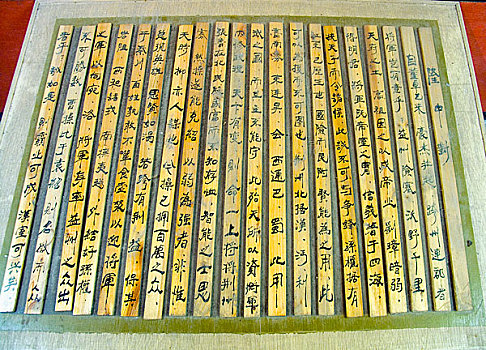 隆中對
自董卓已来 豪杰并起 跨州連郡者
將軍豈有意乎 益州險塞 沃野千里
天府之土 高祖因之以成帝业 刘璋暗弱
得明君 將軍既帝室之胄 信義著于四海
挾天子而令諸侯 此誠不可与爭鋒 孫權据有
江東已歷三世 國險而民附 賢能為之用 此
可以為援而不可圖也 荊州北据漢沔 利
盡南海 東連吳會 西通巴蜀 此用
武之國 而其主不能守 此殆天所以資將軍
内修政理 天下有變 則命一上將將荊州
張魯在北 民殷國富而不知存恤 智能之士思
寡 然操遂能克紹 以弱為強者 非惟
天時 抑亦人謀也 今操已拥百萬之众
总攬英雄 思賢如渴 若跨有荊益 保其
于秦川 百姓孰敢不簞食壺漿以迎將軍
岩阻 西和諸戎 南撫夷越 外結好孫權
之軍以向宛洛 將軍身率益州之众出
不可勝數 曹操比于袁紹 則名微而众
者乎 誠如是 則霸业可成 漢室可兴矣